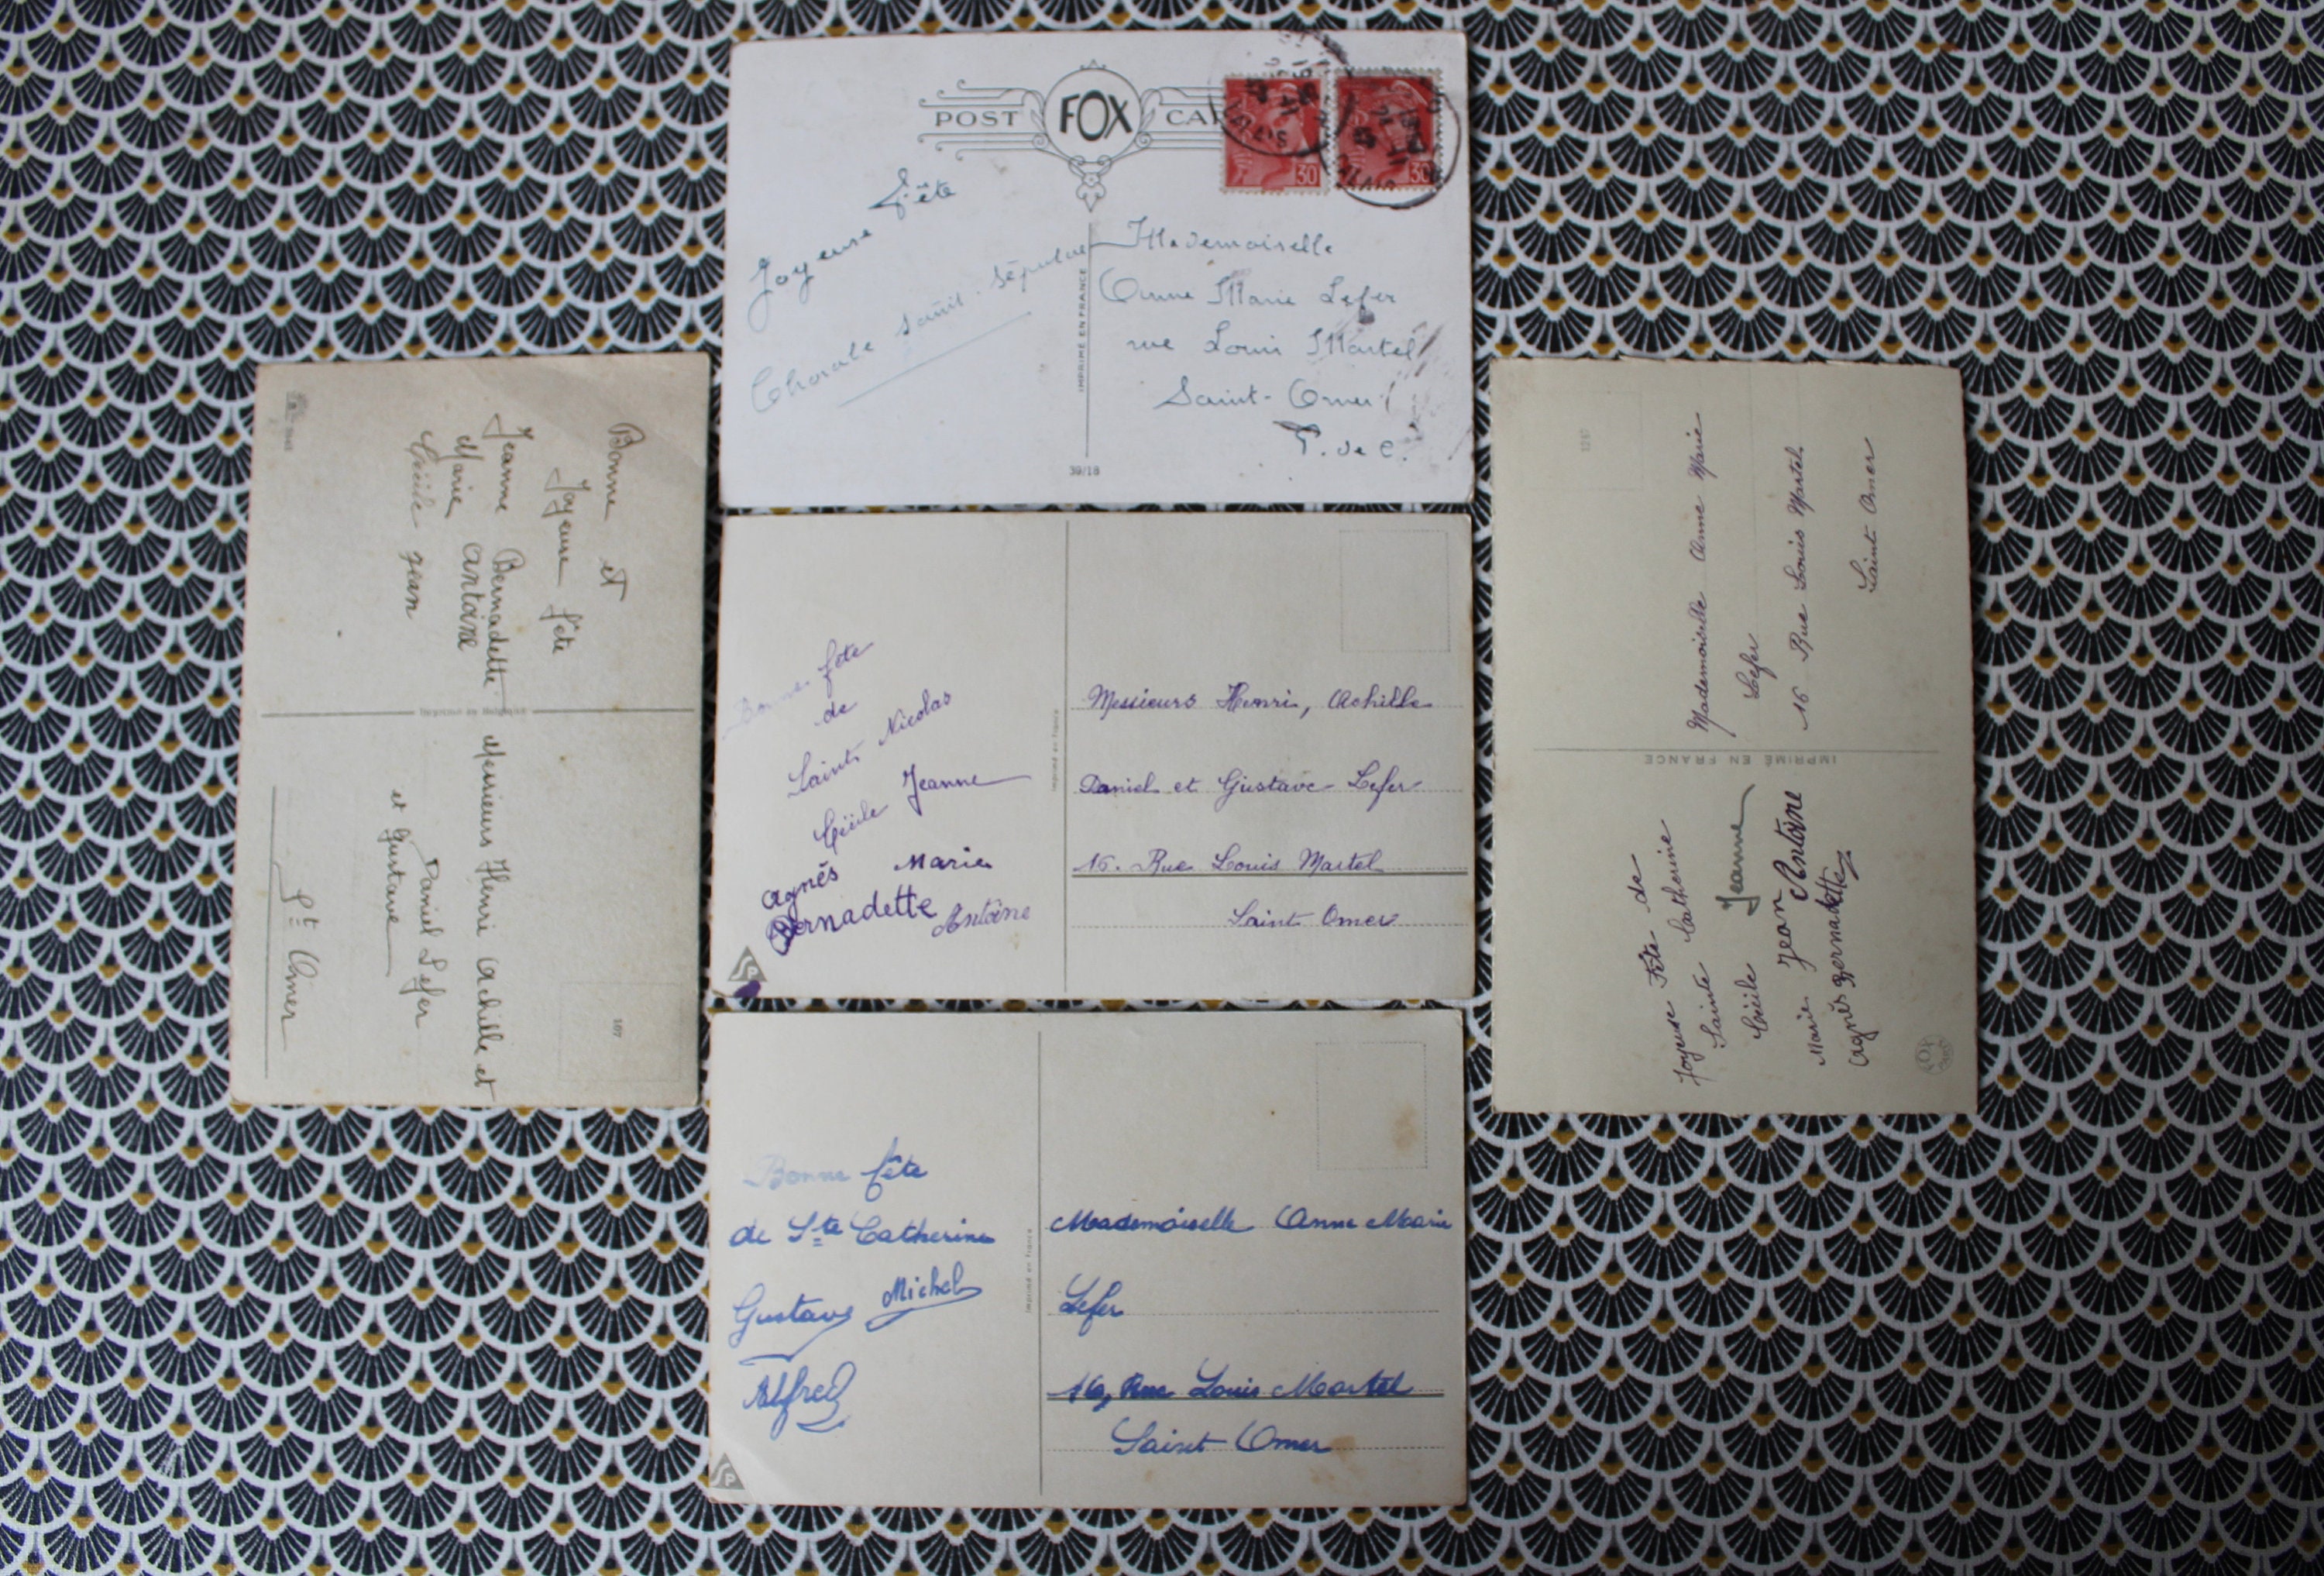 POST FOX CAR
30
30
Joyeuse Fête
Chorale Saint-Sépulcre
IMPRIMÉ EN FRANCE
39/18
Mademoiselle
Anne Marie Lefer
rue Louis Martel
Saint-Omer
P. de C.
Bonne et
Joyeuse fête
Jeanne Bernadette
Marie Antoine
Cécile Jean
Messieurs Henri Achille et
Daniel Lefer
et Gustave
St Omer
107
Bonne fête
de
Saint Nicolas
Cécile Jeanne
Agnès Marie
Bernadette Antoine
Imprimé en France
SP
Messieurs Henri, Achille
Daniel et Gustave Lefer
16. Rue Louis Martel
Saint Omer
Mademoiselle Anne Marie
Lefer
16 Rue Louis Martel
Saint Omer
IMPRIMÉ EN FRANCE
Joyeuse Fête de
Sainte Catherine
Cécile Jeanne
Marie Jean Antoine
Agnès Bernadette
Bonne fête
de Ste Catherine
Gustave Michel
Alfred
Imprimé en France
SP
Mademoiselle Anne Marie
Lefer
16, Rue Louis Martel
Saint Omer